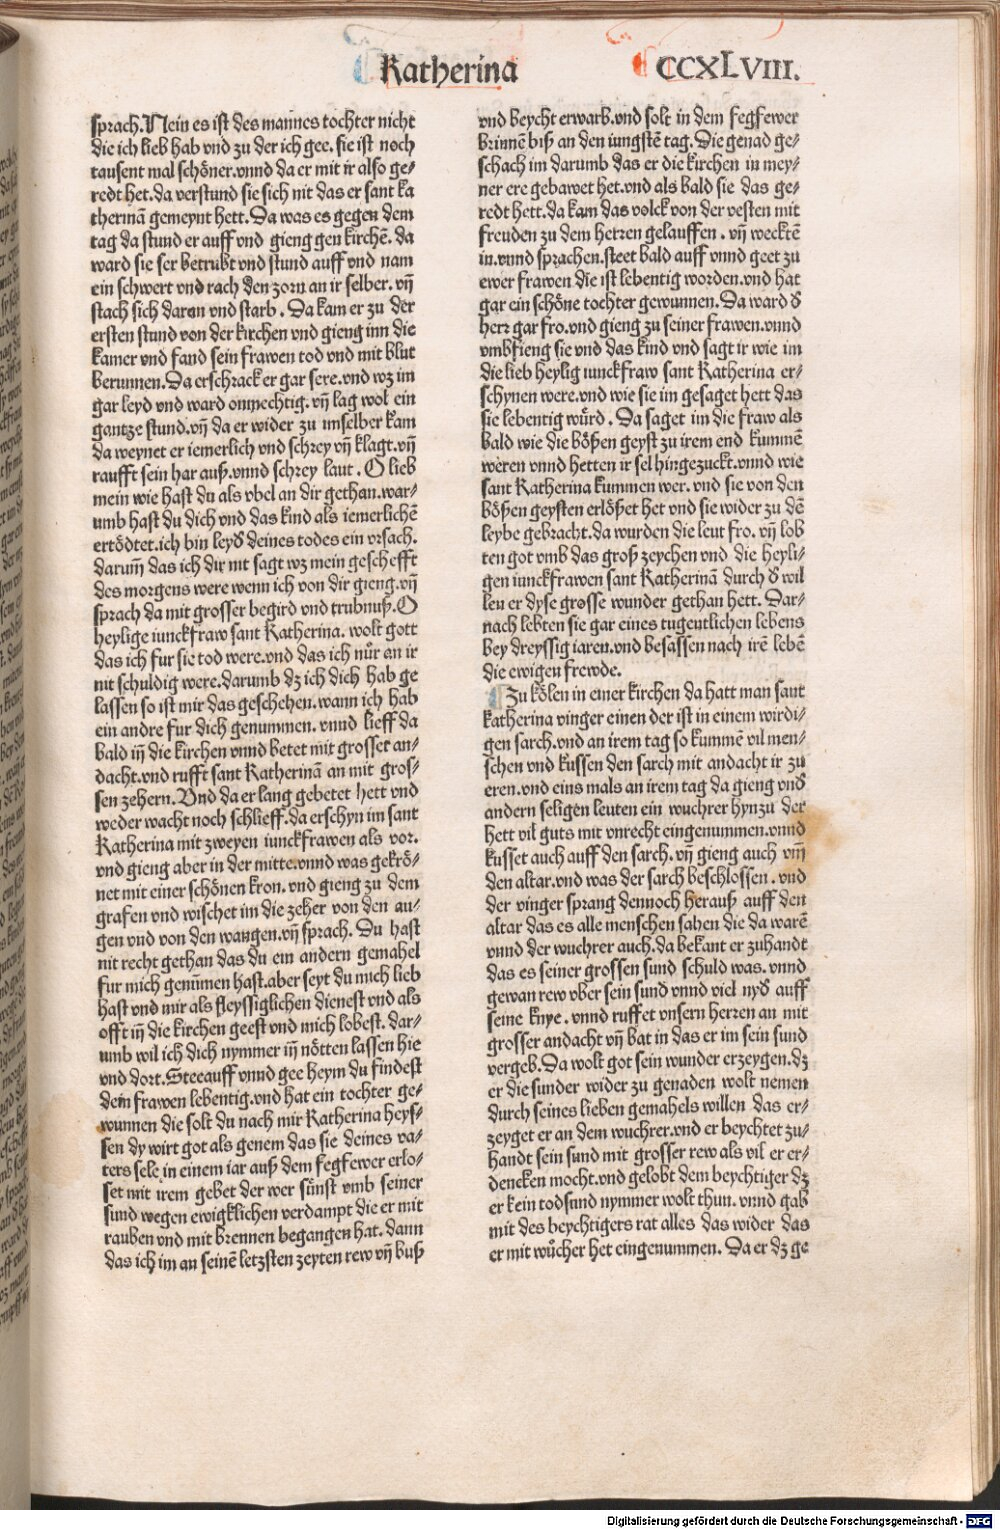 Katherina CCXLVIII.
sprach. Nein es ist des mannes tochter nicht
die ich lieb hab vnd zu der ich gee. sie ist noch
tausent mal schöner. vnnd da er mit ir also ge⸗
redt het. da verstund sie sich nit das er sant ka
therinā gemeynt hett. Da was es gegen dem
tag da stund er auff vnd gieng gen kirchē. da
ward sie ser betrubt vnd stund auff vnd nam
ein schwert vnd rach den zorn an ir selber. vñ
stach sich daran vnd starb. Da kam er zu der
ersten stund von der kirchen vnd gieng inn die
kamer vnd fand sein frawen tod vnd mit blut
berunnen. Da erschrack er gar sere. vnd wz im
gar leyd vnd ward onmechtig. vñ lag wol ein
gantze stund. vñ da er wider zu imselber kam
da weynet er iemerlich vnd schrey vñ klagt. vñ
raufft sein har auß. vnnd schrey laut. O lieb
mein wie hast du als vbel an dir gethan. war⸗
umb hast du dich vnd das kind als iemerlichē
ertödtet. ich bin leyd deines todes ein vrsach.
darum̄ das ich dir nit sagt wz mein geschefft
des morgens were wenn ich von dir gieng. vñ
sprach da mit grosser begird vnd trubnuß. O
heylige iunckfraw sant Katherina. wolt gott
das ich fur sie tod were. vnd das ich nůr an ir
nit schuldig were. darumb dz ich dich hab ge
lassen so ist mir das geschehen. wann ich hab
ein andre fur dich genummen. vnnd lieff da
bald iñ die kirchen vnnd betet mit grosser an⸗
dacht. vnd rufft sant Katherinā an mit gros⸗
sen zehern. Vnd da er lang gebetet hett vnd
weder wacht noch schlieff. da erschyn im sant
Katherina mit zweyen iunckfrawen als vor.
vnd gieng aber in der mitte. vnnd was gekrö⸗
net mit einer schönen kron. vnd gieng zu dem
grafen vnd wischet im die zeher von den au⸗
gen vnd von den wangen. vñ sprach. Du hast
nit recht gethan das du ein andern gemahel
fur mich genūmen hast. aber seyt du mich lieb
hast vnd mir als fleyssiglichen dienest vnd als
offt iñ die kirchen geest vnd mich lobest. dar⸗
umb wil ich dich nymmer iñ nötten lassen hie
vnd dort. Stee auff vnnd gee heym du findest
dein frawen lebentig. vnd hat ein tochter ge⸗
wunnen die solt du nach mir Katherina heys⸗
sen dy wirt got als genem das sie deines va⸗
ters sele in einem iar auß dem fegfewer erlo⸗
set mit irem gebet der wer sünst vmb seiner
sund wegen ewigklichen verdampt die er mit
rauben vnd mit brennen begangen hat. dann
das ich im an seinē letzsten zeyten rew vñ buß
vnd beycht erwarb. vnd solt in dem fegfewer
brinnē biß an den iungstē tag. Die genad ge⸗
schach im darumb das er die kirchen in mey⸗
ner ere gebawet het. vnd als bald sie das ge⸗
redt hett. da kam das volck von der vesten mit
freuden zu dem herren gelauffen. vñ wecktē
in. vnnd sprachen. steet bald auff vnnd geet zu
ewer frawen die ist lebentig worden. vnd hat
gar ein schöne tochter gewunnen. Da ward ð
herr gar fro. vnd gieng zu seiner frawen. vnnd
vmbfieng sie vnd das kind vnd sagt ir wie im
die lieb heylig iunckfraw sant Katherina er⸗
schynen were. vnd wie sie im gesaget hett das
sie lebentig wůrd. Da saget im die fraw als
bald wie die bößen geyst zu irem end kummē
weren vnnd hetten ir sel hingezuckt. vnnd wie
sant Katherina kummen wer. vnd sie von den
bößen geysten erlößet het vnd sie wider zu dē
leybe gebracht. da wurden die leut fro. vñ lob
ten got vmb das groß zeychen vnd die heyli⸗
gen iunckfrawen sant Katherinā durch ð wil
len er dyse grosse wunder gethan hett. Dar⸗
nach lebten sie gar eines tugentlichen lebens
bey dreyssig iaren. vnd besassen nach irē lebē
die ewigen frewde.
Zu kölen in einer kirchen da hatt man sant
katherina vinger einen der ist in einem wirdi⸗
gen sarch. vnd an irem tag so kummē vil men⸗
schen vnd kussen den sarch mit andacht ir zu
eren. vnd eins mals an irem tag da gieng vnð
andern seligen leuten ein wuchrer hynzu der
hett vil guts mit vnrecht eingenummen. vnnd
kusset auch auff den sarch. vñ gieng auch vm̄
den altar. vnd was der sarch beschlossen. vnd
der vinger sprang dennoch herauß auff den
altar das es alle menschen sahen die da warē
vnnd der wuchrer auch. da bekant er zuhandt
das es seiner grossen sund schuld was. vnnd
gewan rew vber sein sund vnnd viel nyð auff
seine knye. vnnd ruffet vnsern herren an mit
grosser andacht vñ bat in das er im sein sund
vergeb. Da wolt got sein wunder erzeygen. dz
er die sunder wider zu genaden wolt nemen
durch seines lieben gemahels willen das er⸗
zeyget er an dem wuchrer. vnd er beychtet zu⸗
handt sein sund mit grosser rew als vil er er⸗
dencken mocht. vnd gelobt dem beychtiger dz
er kein todsund nymmer wolt thun. vnnd gab
mit des beychtigers rat alles das wider das
er mit wůcher het eingenummen. Da er dz ge
Digitalisierung gefördert durch die Deutsche Forschungsgemeinschaft - DFG